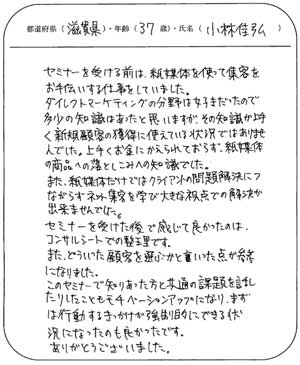 都道府県（滋賀県）・年齢（37歳）・氏名（小林佳弘）
セミナーを受ける前は、紙媒体を使って集客を
お手伝いする仕事をしていました。
ダイレクトマーケティングの分野は好きだったので
多少の知識はあったと思いますが、その知識が上手
く新規顧客の獲得に使えている状況ではありませ
んでした。上手くお金にかえられておらず、紙媒体
の商品への落としこみへの知識でした。
また、紙媒体だけではクライアントの問題解決につ
ながらずネット集客を学び大きな視点での解決が
出来ませんでした。
セミナーを受けた後で感じて良かったのは、
コンサルシートでの整理です。
また、どういった顧客を選ぶかと言いった点が参考
になりました。
このセミナーで知りあった方と共通の課題を話し
たりしたこともモチベーションアップになり、まず
は行動するきっかけが強制的にできる状
況になったのも良かったです。
ありがとうございました。